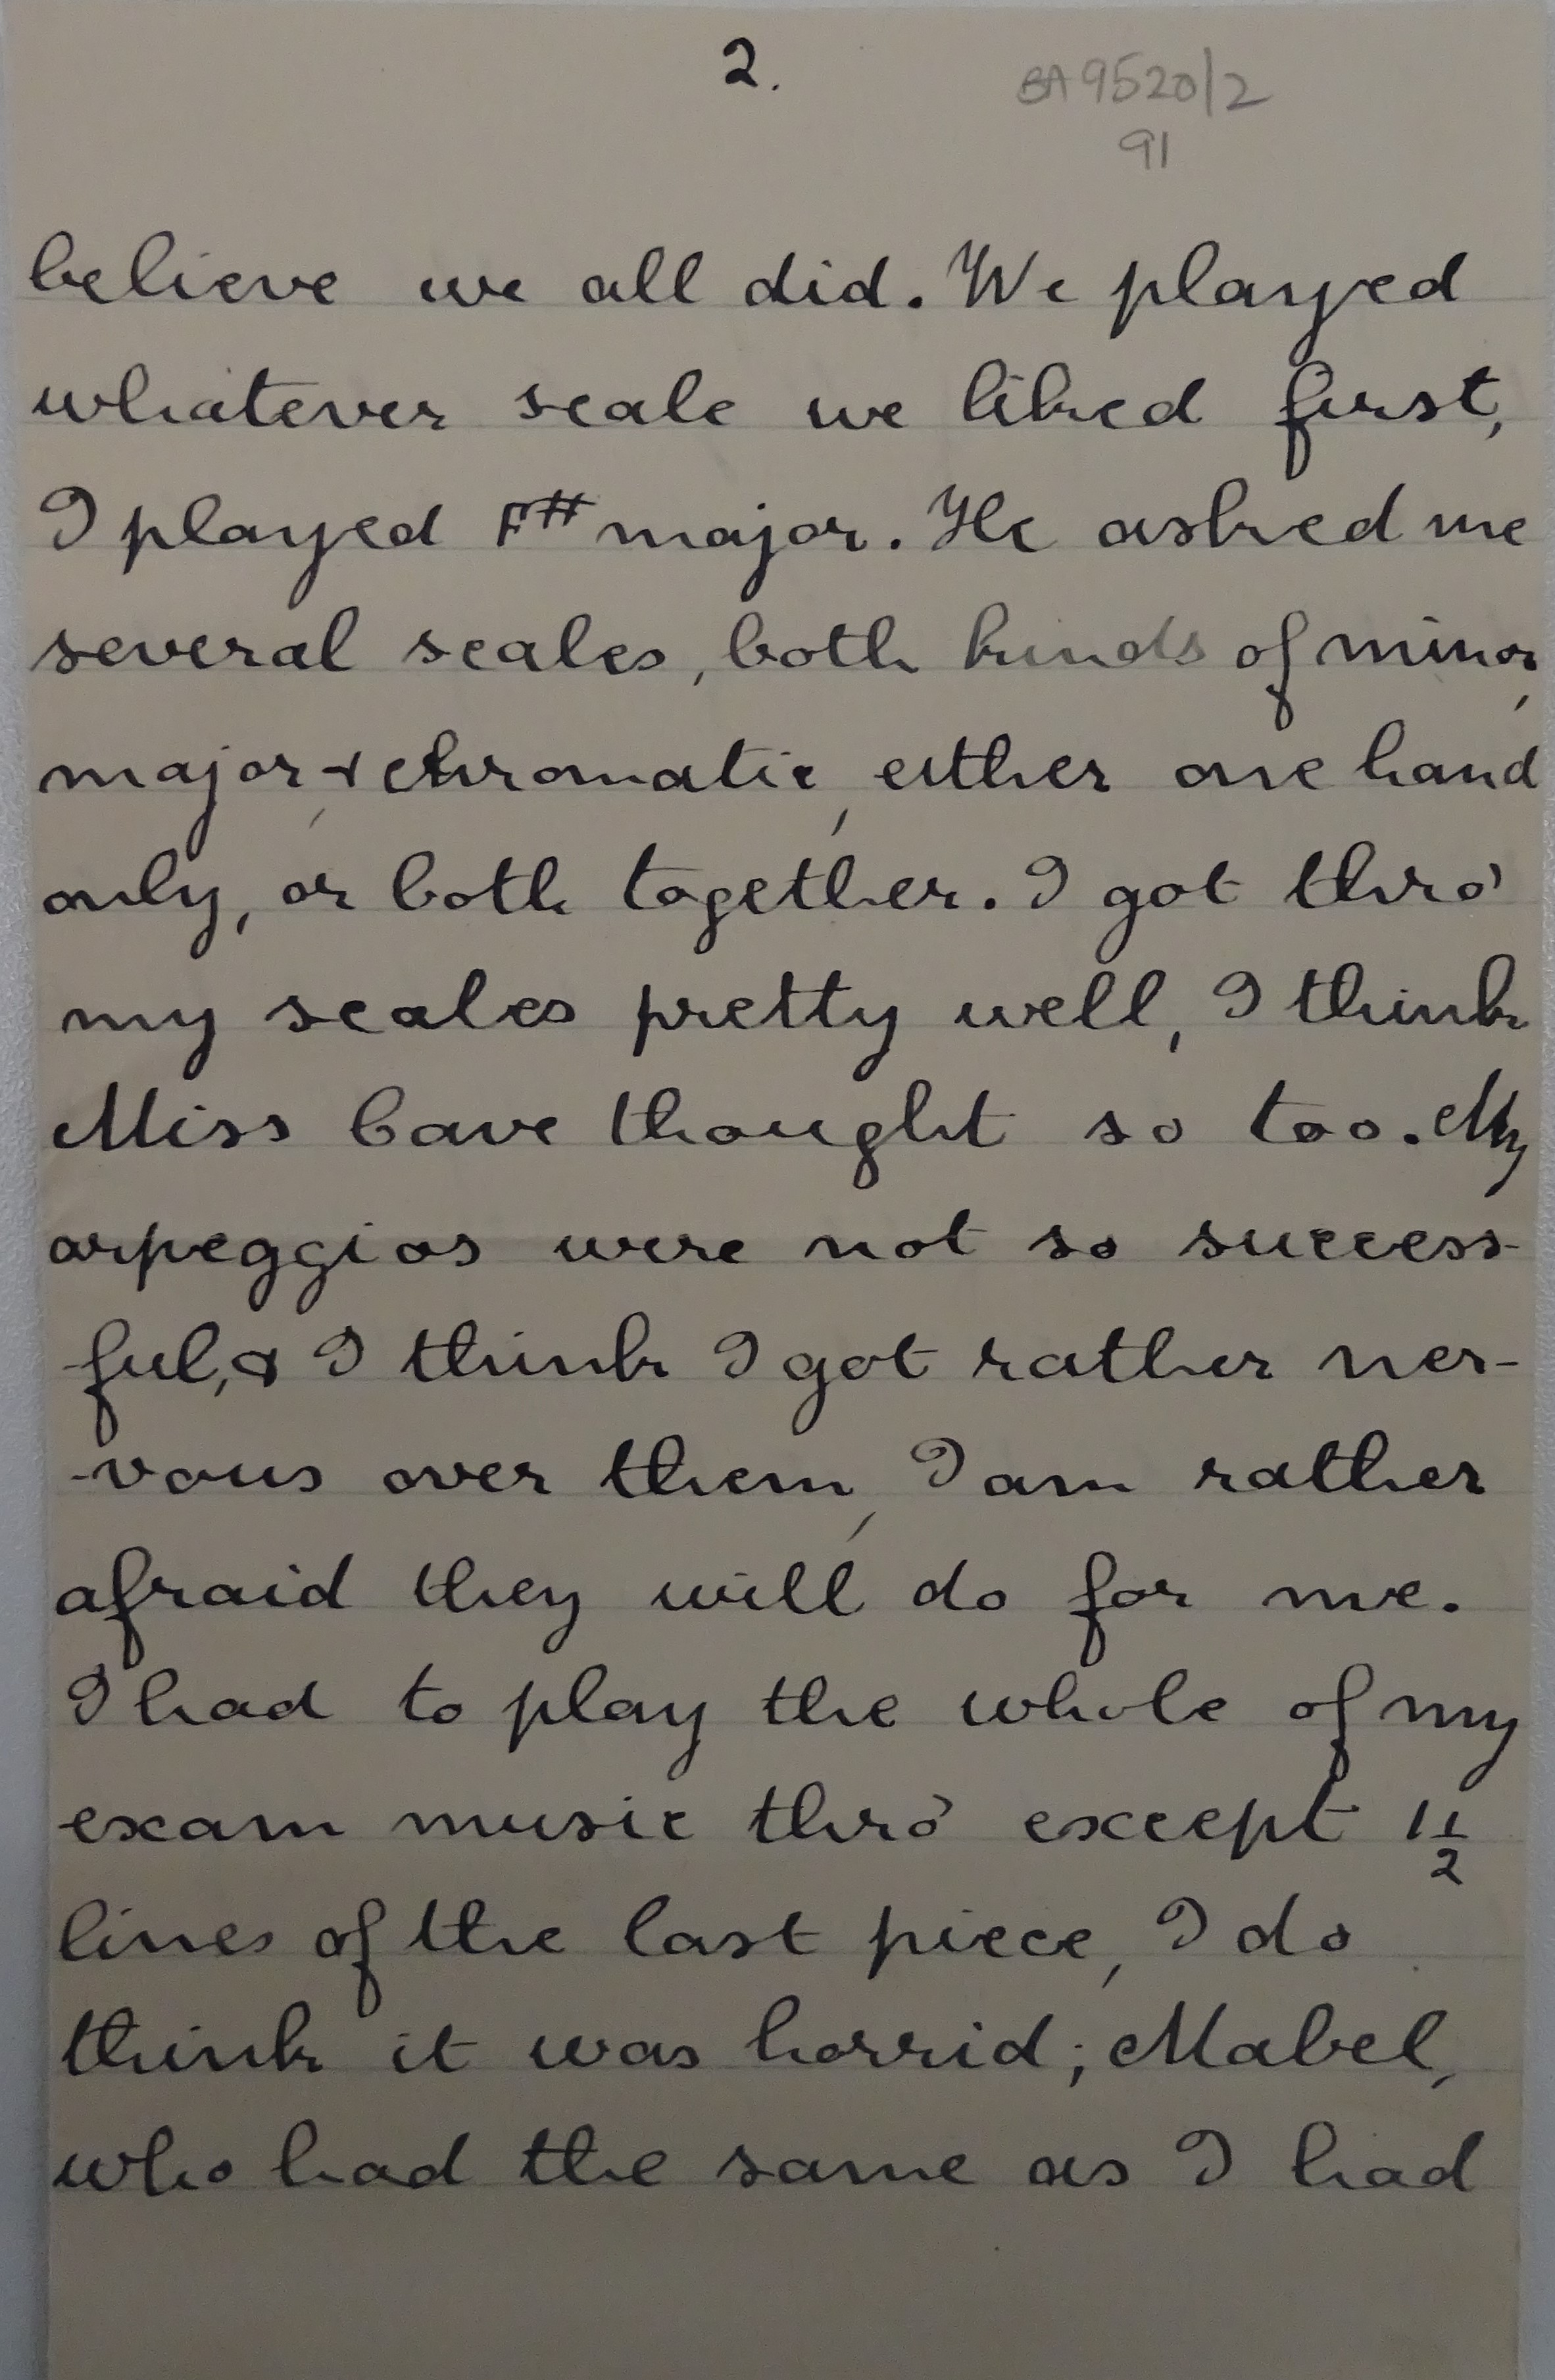 2.
BA 9520/2
91
believe we all did. We played
whatever scale we liked first,
I played F# major. He asked me
several scales, both kinds of minor,
major, & chromatic, either one hand
only, or both together. I got thro'
my scales pretty well, I think
Miss Cave thought so too. My
arpeggios were not so success-
ful, & I think I got rather ner-
-vous over them, I am rather
afraid they will do for me.
I had to play the whole of my
exam music thro' except 1½
lines of the last piece, I do
think it was horrid; Mabel,
who had the same as I had